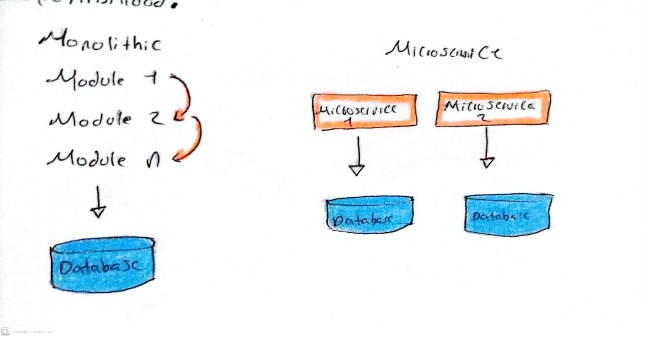 Monolithic
Module 1
Module 2
Module n
Database
Microservice
Microservice
1
Microservice
2
Database
Database